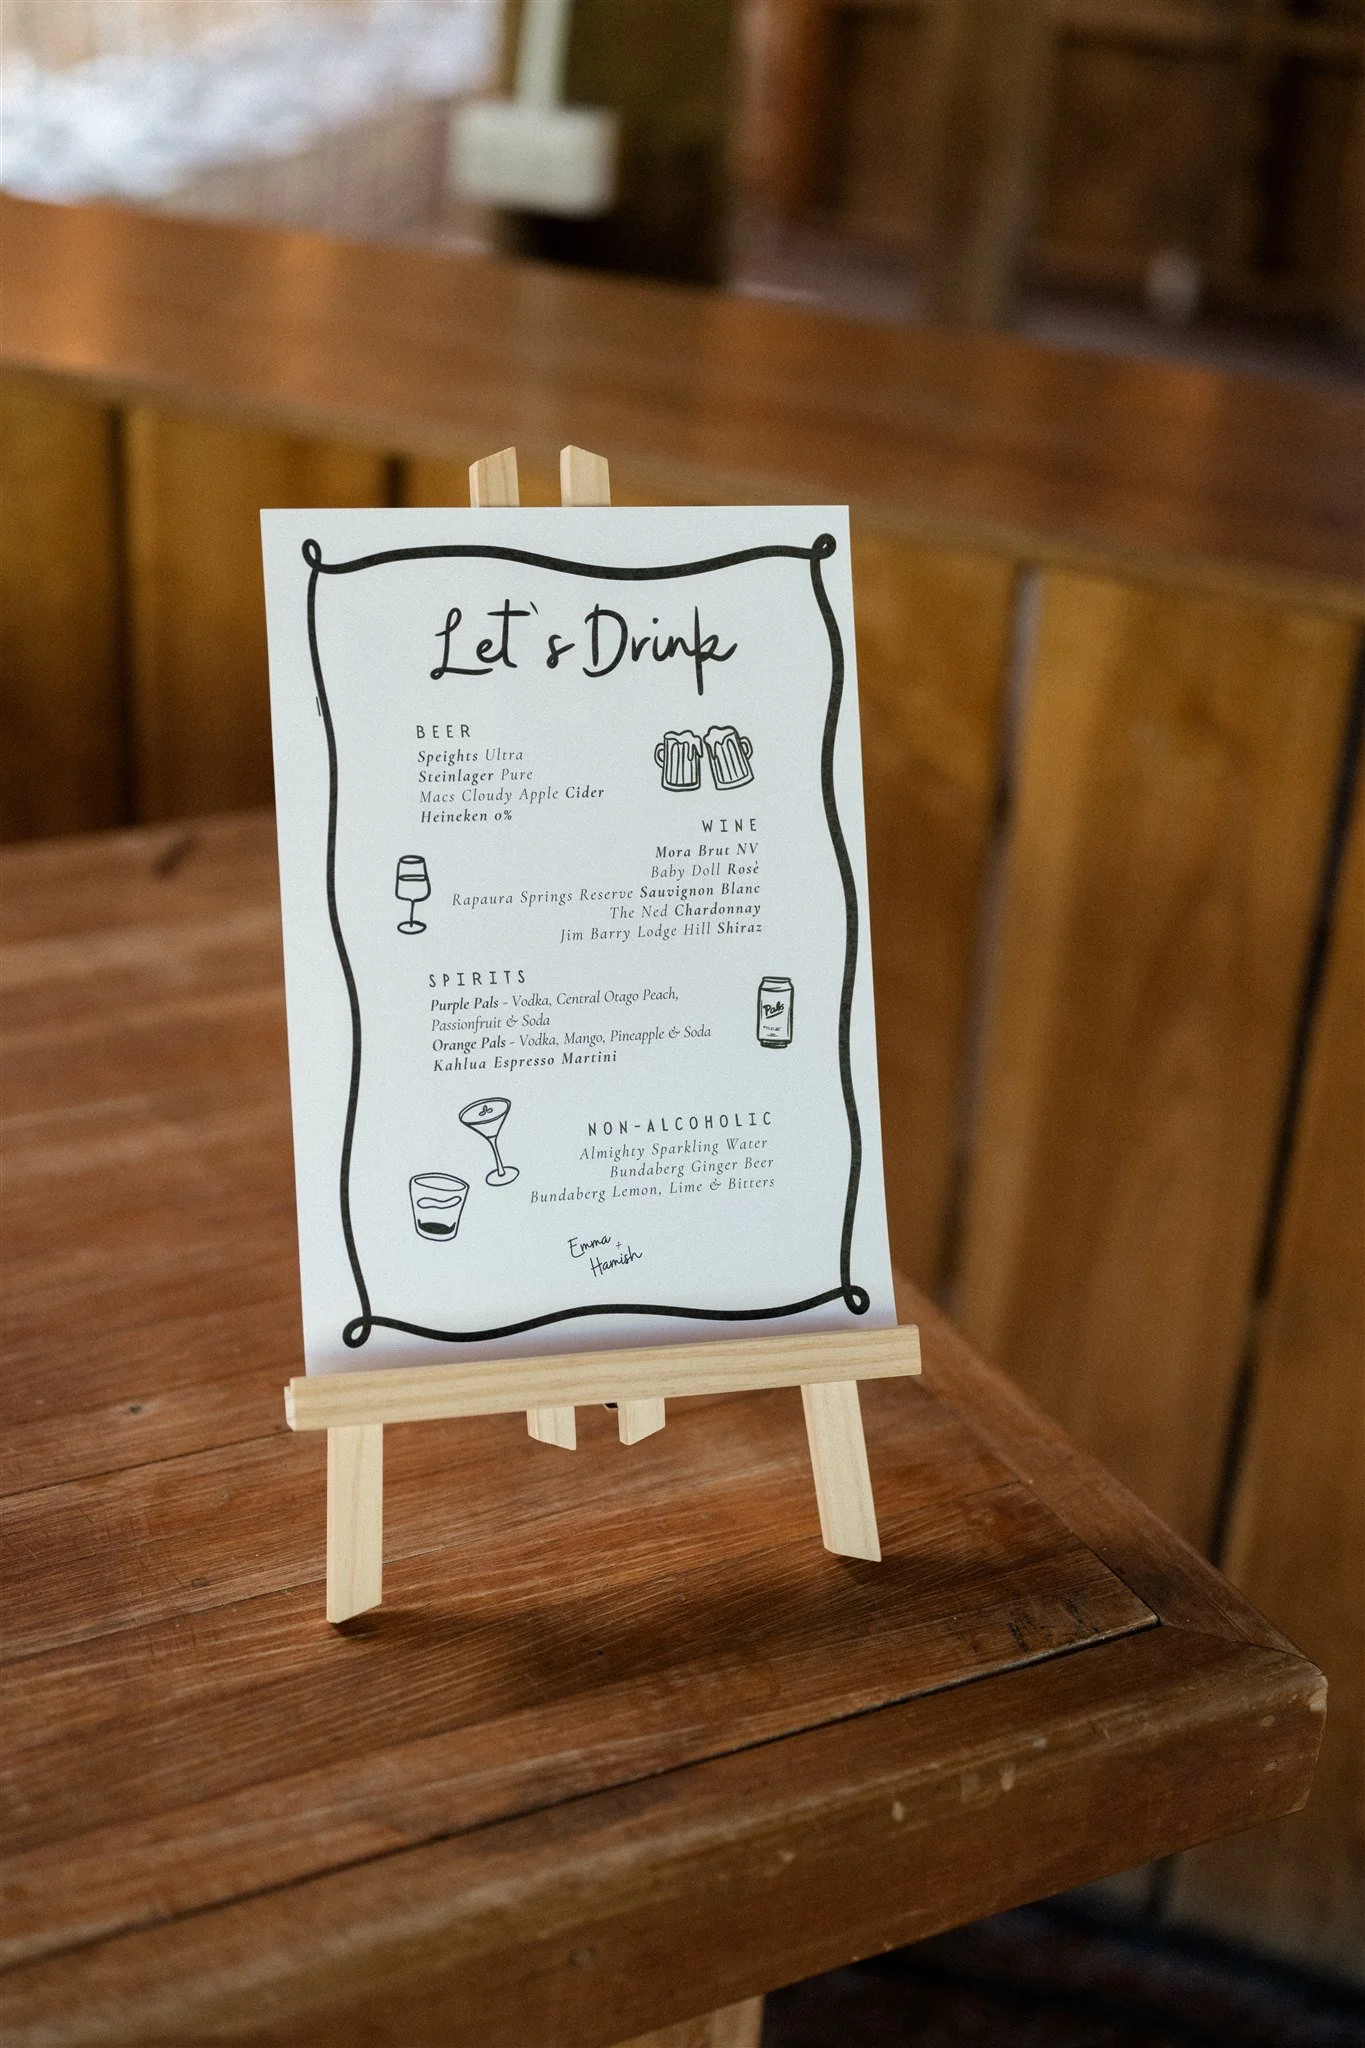 Let's Drink
BEER
Speights Ultra
Steinlager Pure
Macs Cloudy Apple Cider
Heineken 0%
WINE
Mora Brut NV
Baby Doll Rosé
Rapaura Springs Reserve Sauvignon Blanc
The Ned Chardonnay
Jim Barry Lodge Hill Shiraz
SPIRITS
Purple Pals - Vodka, Central Otago Peach,
Passionfruit & Soda
Orange Pals - Vodka, Mango, Pineapple & Soda
Kahlua Espresso Martini
Pals
NON-ALCOHOLIC
Almighty Sparkling Water
Bundaberg Ginger Beer
Bundaberg Lemon, Lime & Bitters
Emma +
Hamish